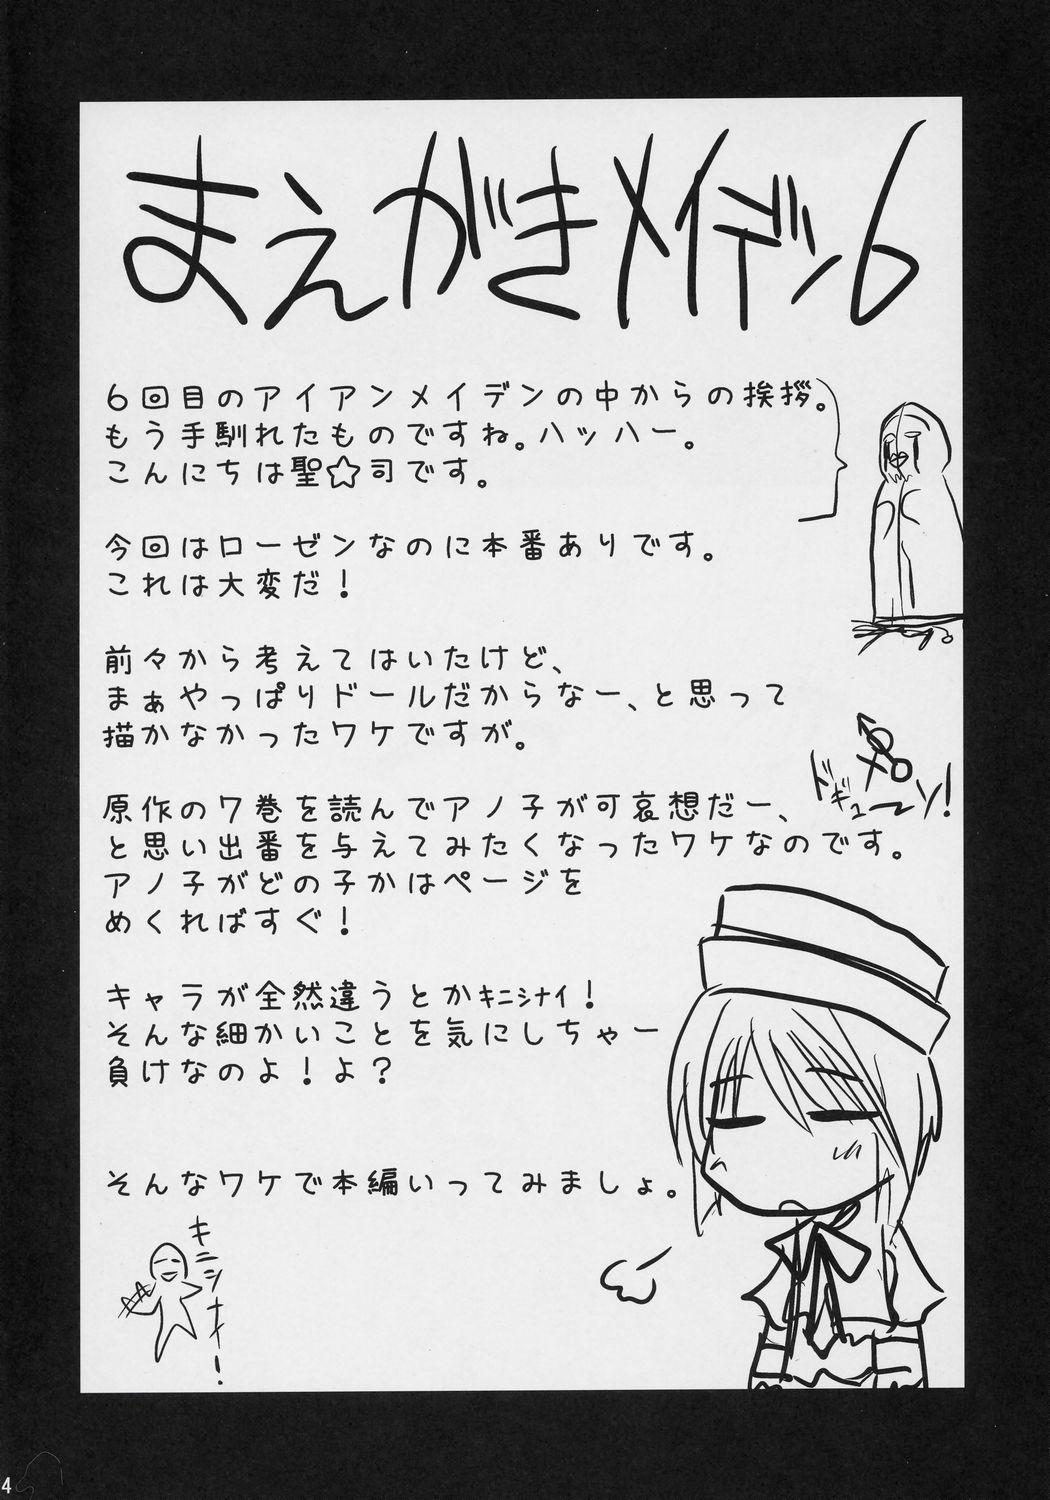 まえがきメイデン6
6回目のアイアンメイデンの中からの挨拶。
もう手馴れたものですね。ハッハー。
こんにちは聖☆司です。
今回はローゼンなのに本番ありです。
これは大変だ！
前々から考えてはいたけど、
まぁやっぱりドールだからなー、と思って
描かなかったワケですが。
ドギューーン！
原作の7巻を読んでアノ子が可哀想だー、
と思い出番を与えてみたくなったワケなのです。
アノ子がどの子かはページを
めくればすぐ！
キャラが全然違うとかｷﾆｼﾅｲ！
そんな細かいことを気にしちゃー
負けなのよ！よ？
そんなワケで本編いってみましょ。
キニシナイ！
4